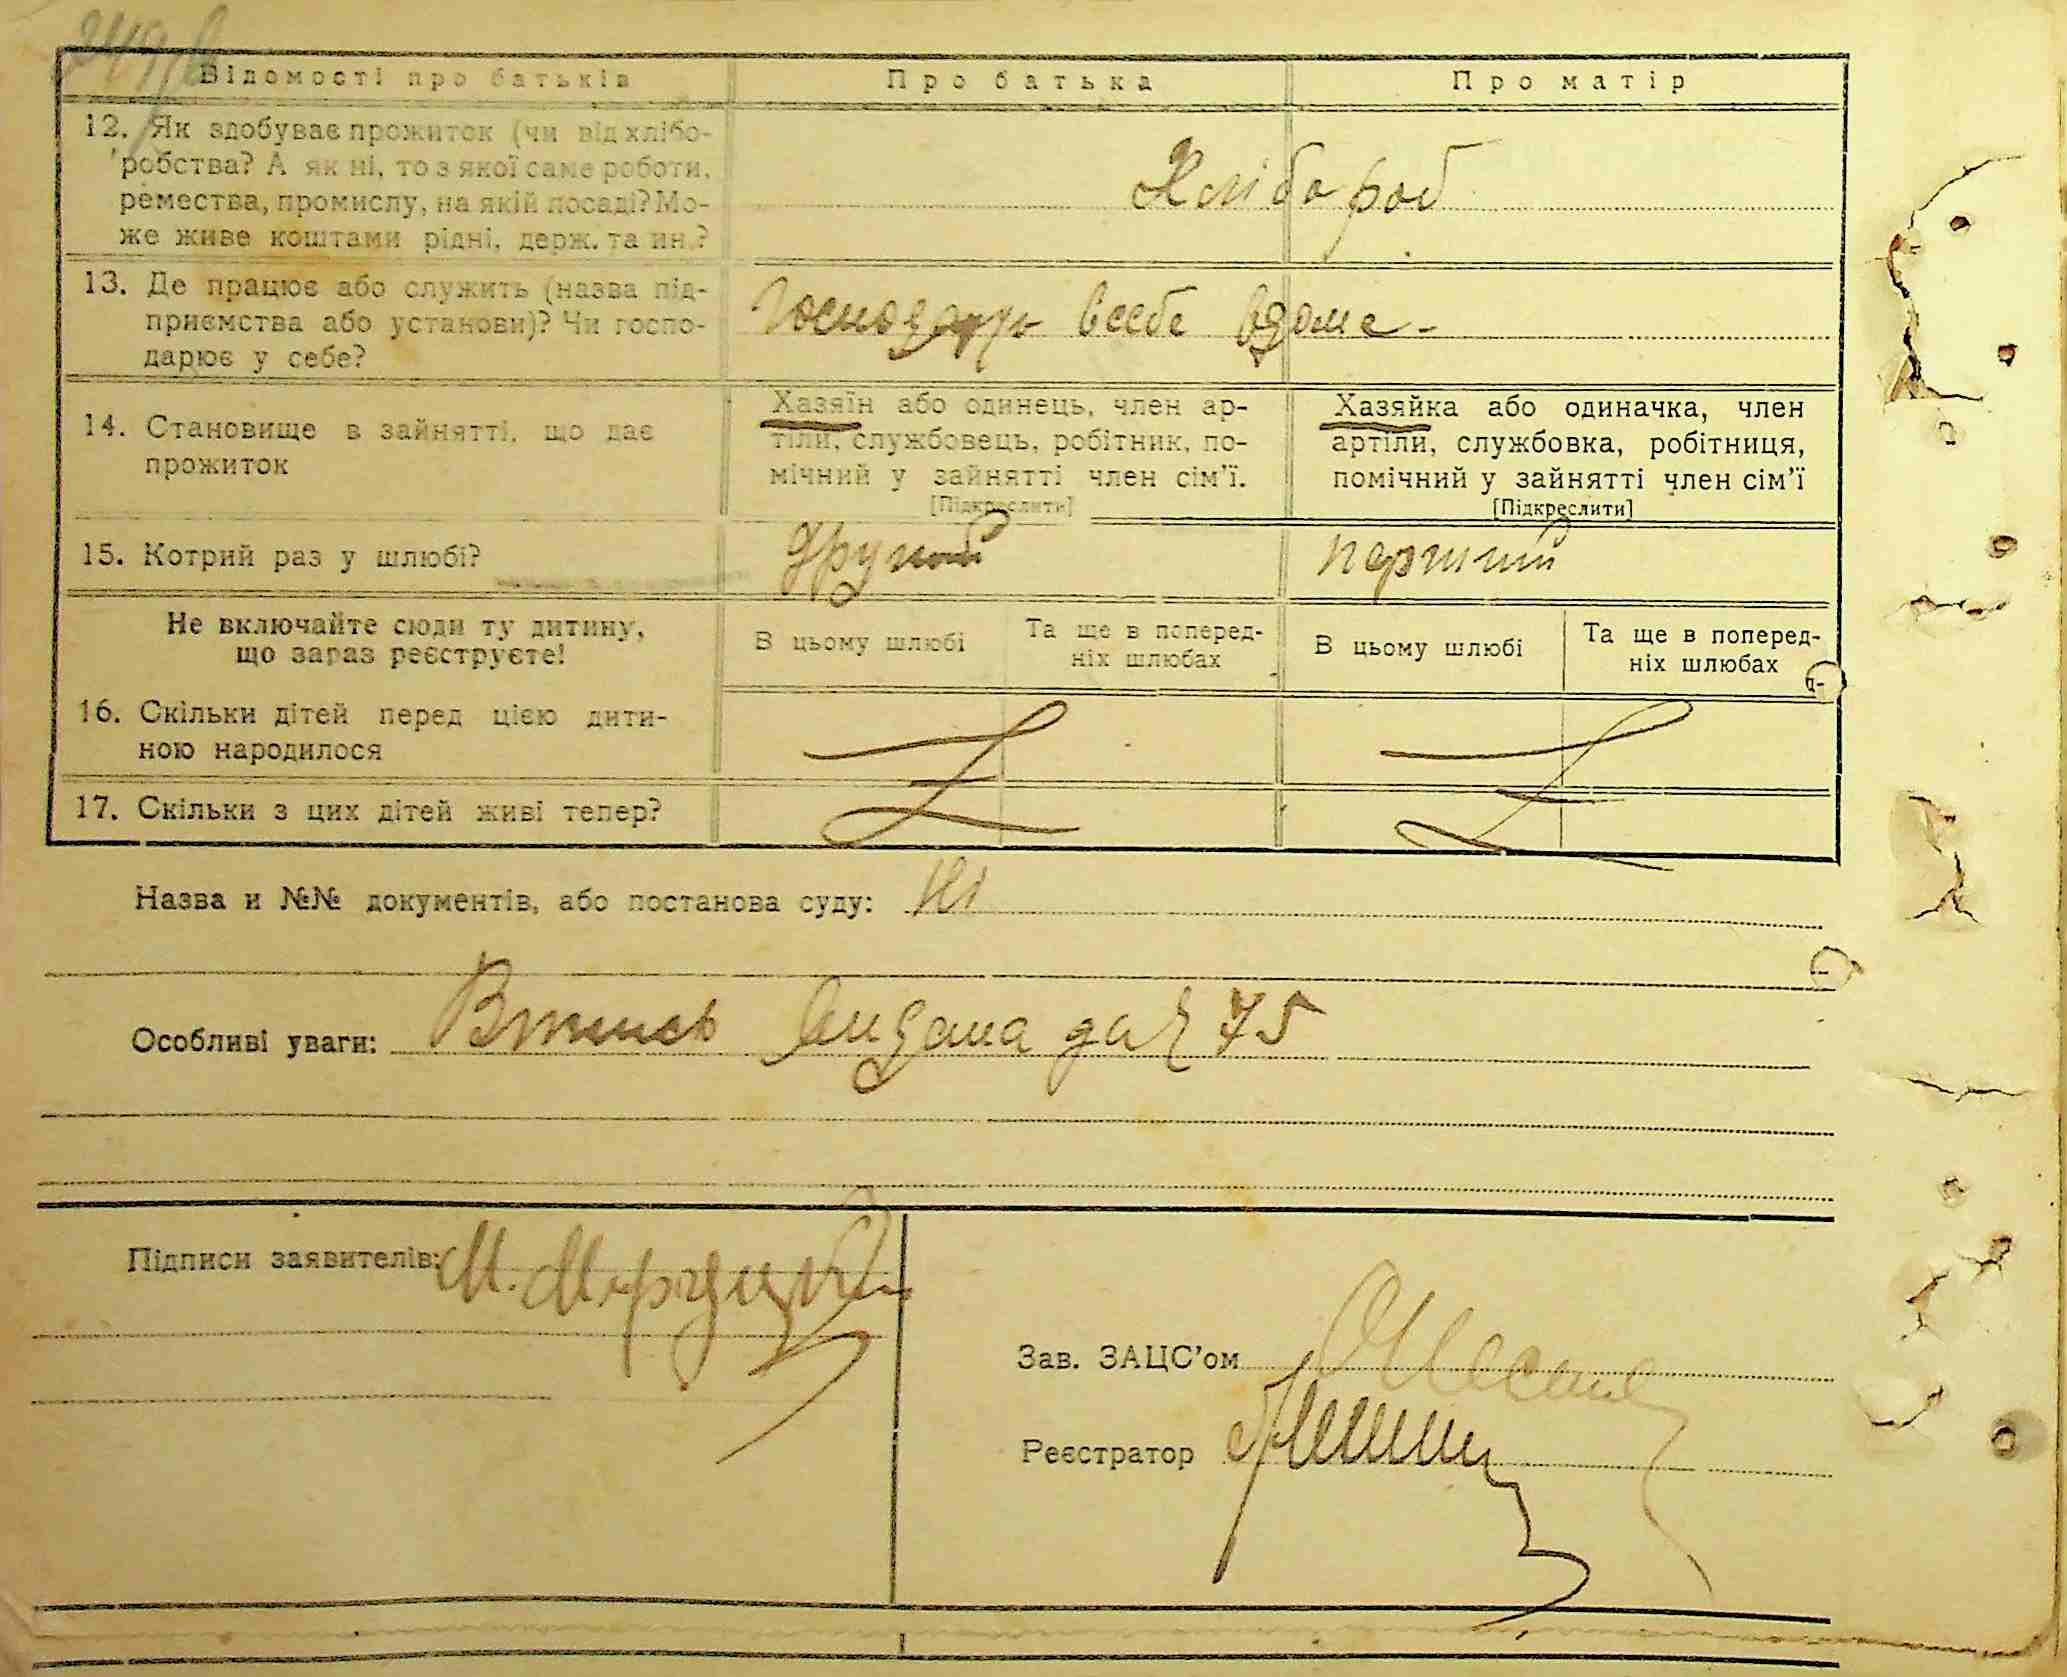 Відомості про батьків Про батька Про матір
12. Як здобуває прожиток (чи від хлібо-
робства? А як ні, то з якої саме роботи,
ремества, промислу, на якій посаді? Мо-
же живе коштами рідні, держ. та ин.?
Хлібороб
13. Де працює або служить (назва під-
приємства або установи)? Чи госпо-
дарює у себе?
Господарь всебе вдоме -
14. Становище в зайнятті, що дає
прожиток
Хазяїн або одинець, член ар-
тіли, службовець, робітник, по-
мічний у зайнятті член сім'ї.
[Підкреслити]
Хазяйка або одиначка, член
артіли, службовка, робітниця,
помічний у зайнятті член сім'ї
[Підкреслити]
15. Котрий раз у шлюбі? Другий перший
Не включайте сюди ту дитину,
що зараз реєструєте!
В цьому шлюбі
Та ще в поперед-
ніх шлюбах
В цьому шлюбі
Та ще в поперед-
ніх шлюбах
16. Скільки дітей перед цією дити-
ною народилося
17. Скільки з цих дітей живі тепер?
Назва и №№ документів, або постанова суду: Ні
Особливі уваги: видана 75
Підписи заявителів: М.
Зав. ЗАЦС'ом
Реєстратор